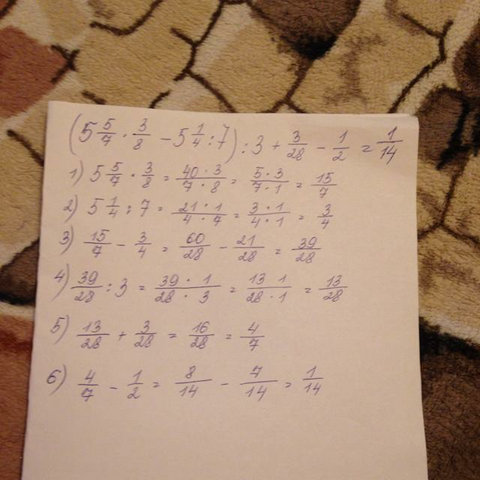 (5 5/7 · 3/8 - 5 1/4 : 7) : 3 + 3/28 - 1/2 = 1/14
1) 5 5/7 · 3/8 = 40 · 3/7 · 8 = 5 · 3/7 · 1 = 15/7
2) 5 1/4 : 7 = 21 · 1/4 · 7 = 3 · 1/4 · 1 = 3/4
3) 15/7 - 3/4 = 60/28 - 21/28 = 39/28
4) 39/28 : 3 = 39 · 1/28 · 3 = 13 · 1/28 · 1 = 13/28
5) 13/28 + 3/28 = 16/28 = 4/7
6) 4/7 - 1/2 = 8/14 - 7/14 = 1/14